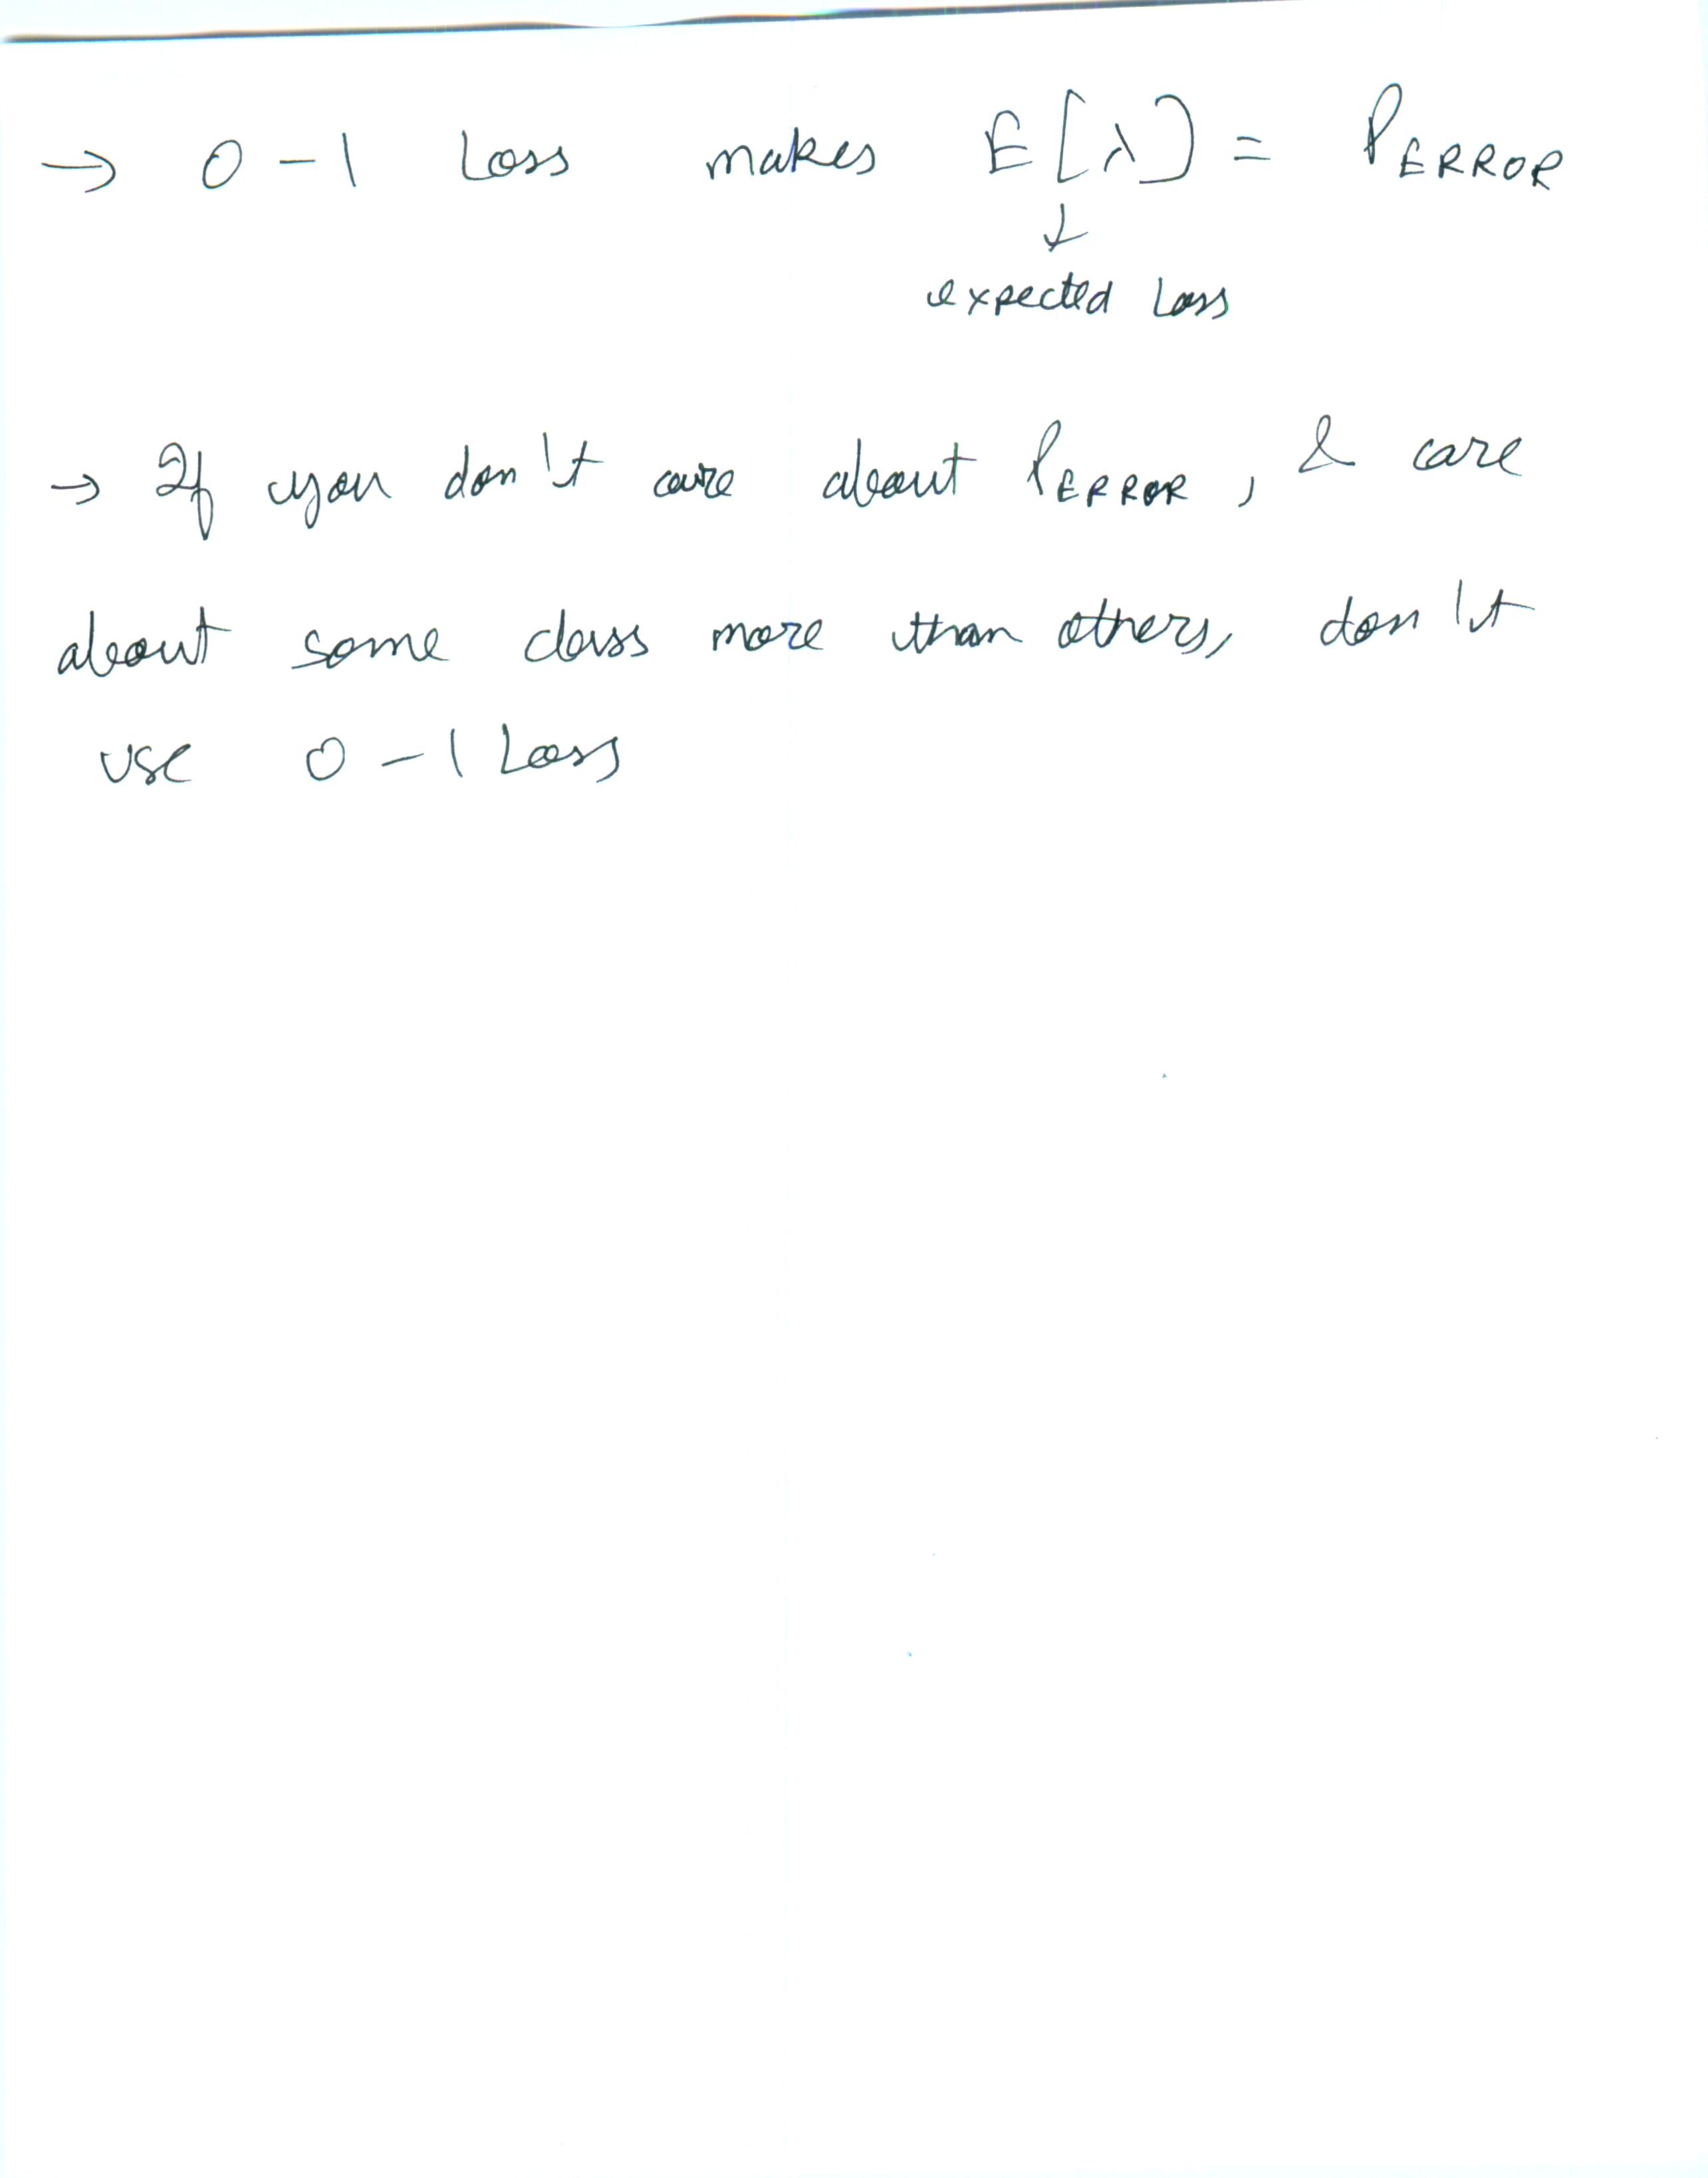 → 0-1 Loss makes E[λ] = P_ERROR
↓
expected Loss
→ If you don't care about P_ERROR, & care
about some class more than others, don't
use 0-1 Loss